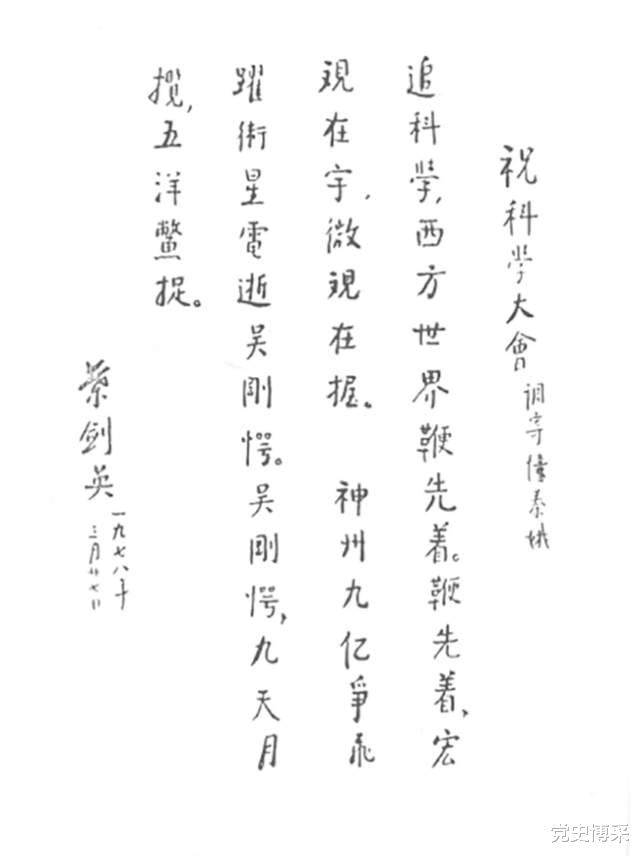 祝科學大會 调寄憶秦娥
追科學,西方世界鞭先着。鞭先着,宏
觀在宇,微觀在握。 神州九亿爭飛
躍,衛星電逝吴剛愕。吴剛愕,九天月
攬,五洋鱉捉。
葉劍英
一九七八年
三月廿七日
党史博采